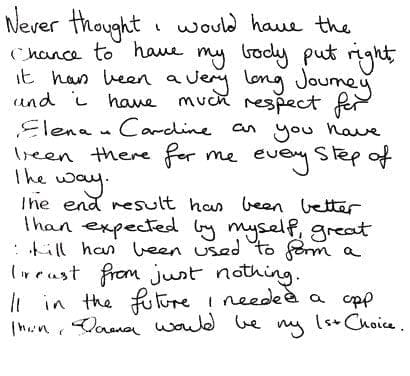 Never thought i would have the
Chance to have my body put right,
it has been a very long Journey
and i have much respect for
Elena & Caroline as you have
been there for me every Step of
the way.
The end result has been better
than expected by myself, great
skill has been used to form a
breast from just nothing.
If in the future i needed a opp
then, would be my 1st Choice.